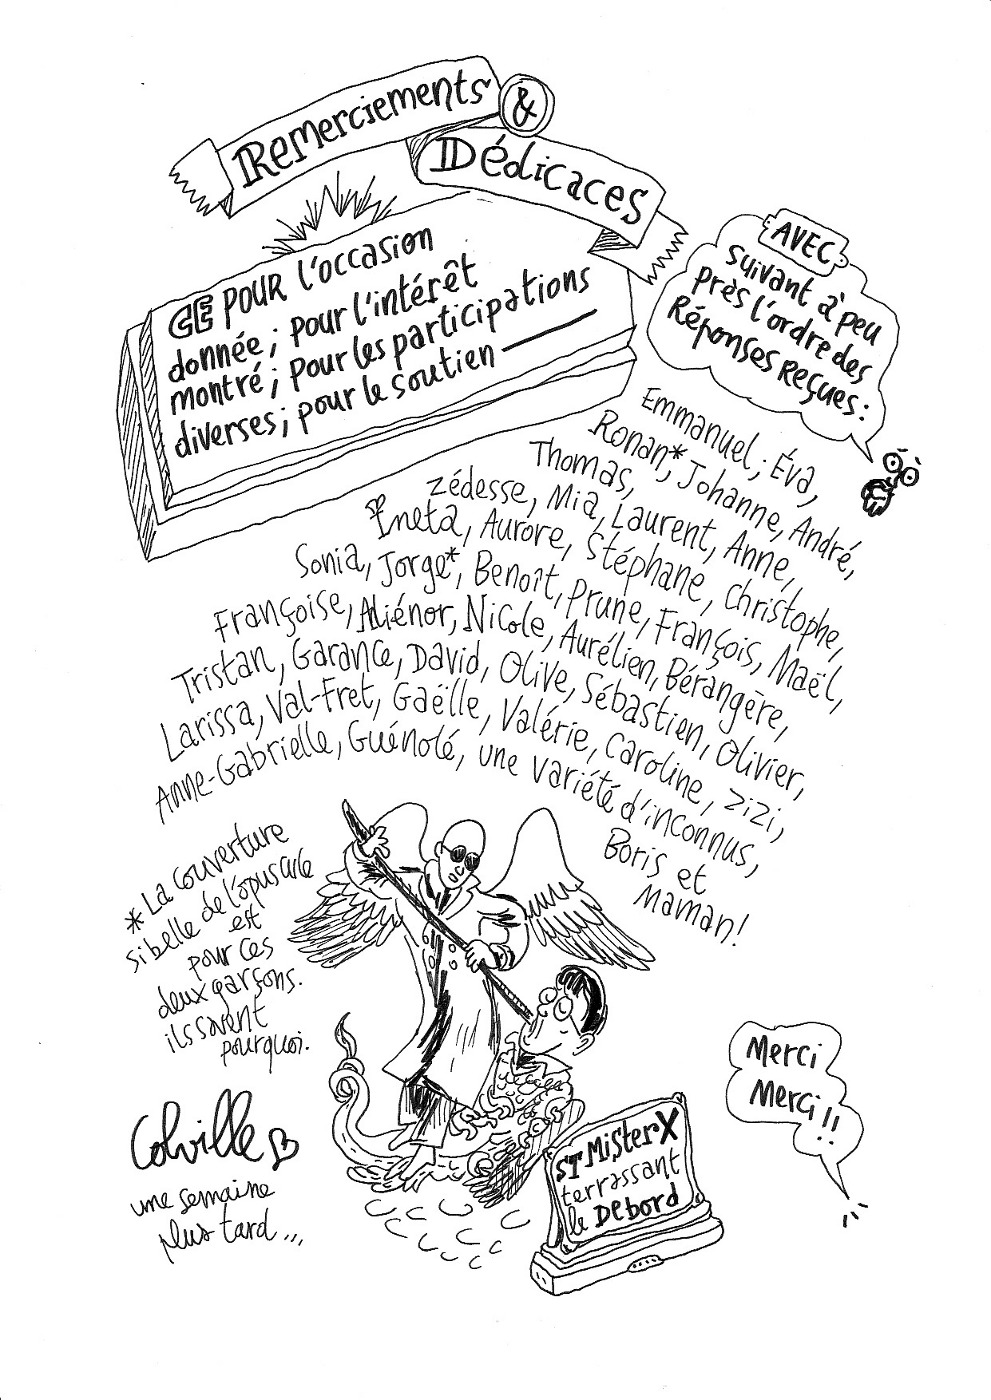 Remerciements
&
Dédicaces
CE POUR l'occasion
donnée; pour l'intérêt
montré; pour les participations
diverses; pour le soutien —
AVEC
suivant à peu
près l'ordre des
Réponses reçues:
Emmanuel; Éva,
Ronan*, Johanne, André,
Thomas, Laurent, Anne,
Zédesse, Mia, Stéphane, Christophe,
Ineta, Aurore, Prune, François, Maël,
Sonia, Jorge*, Benoît, Aurélien, Bérangère,
Françoise, Aliénor, Nicole, Sébastien, Olivier,
Tristan, Garance, David, Olive, Caroline, zizi,
Larissa, Val-Fret, Gaëlle, Valérie,
Anne-Gabrielle, Guénolé, une variété d'inconnus,
Boris et
Maman!
* La couverture
si belle de l'opuscule
est
pour ces
deux garçons.
ils savent
pourquoi.
Colville
une semaine
plus tard...
ST MisterX
terrassant
le Debord
Merci
Merci!!